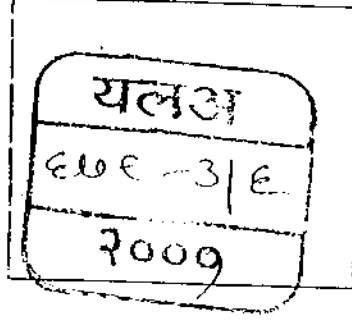 यलअ
६७९ - ३/६
२००१